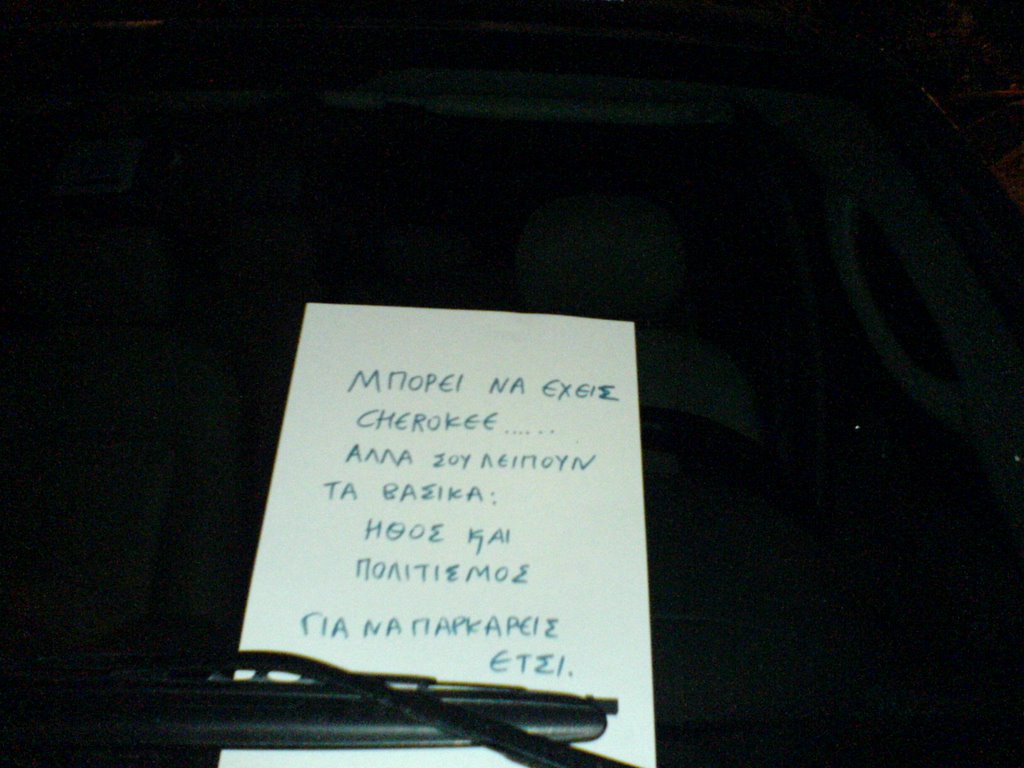 ΜΠΟΡΕΙ ΝΑ ΕΧΕΙΣ
CHEROKEE......
ΑΛΛΑ ΣΟΥ ΛΕΙΠΟΥΝ
ΤΑ ΒΑΣΙΚΑ:
ΗΘΟΣ ΚΑΙ
ΠΟΛΙΤΙΣΜΟΣ
ΓΙΑ ΝΑ ΠΑΡΚΑΡΕΙΣ
ΕΤΣΙ.